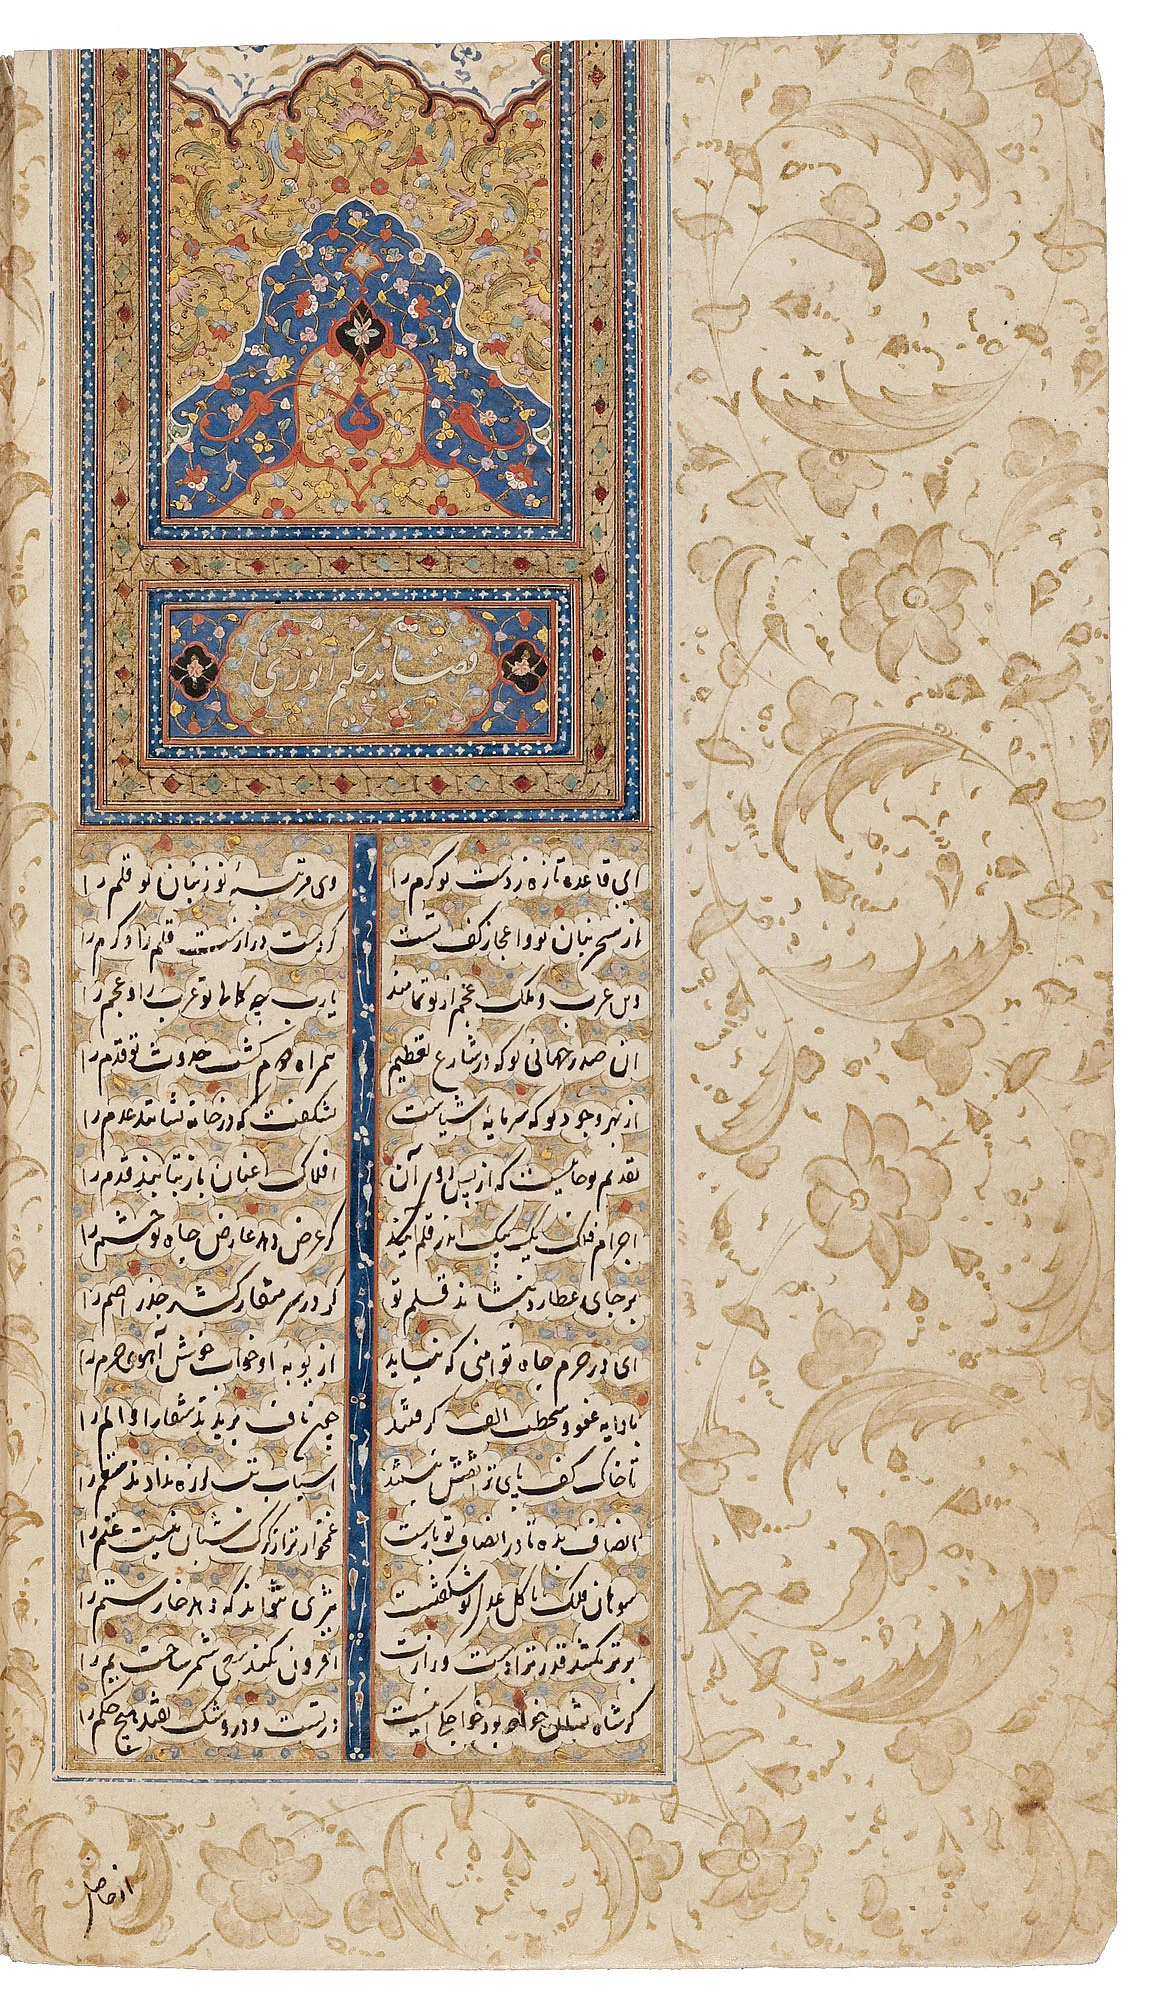 قصاید حکیم انوری
ای قاعده تازه ز دست تو کرم را
وی مرتبهٔ نو ز بنان تو قلم را
از سحر بنان تو و اعجاز کف تست
گر دست درازیست قلم را و کرم را
دین عرب و ملک عجم از تو تمامند
یارب چه کمالی تو عرب را و عجم را
آن صدر جهانی تو که در شارع تعظیم
همراه دوم گشت حدوث تو قدم را
از بهر وجود تو که سرمایهٔ اشیاست
نشکفت که در خانه نشانند عدم را
تقدیم تو جائیست که از پس روی آن
افلاک عنان باز نتابند قدم را
اجرام فلک یک بیک اندر قلم آرند
گر عرض دهد عارض جاه تو حشم را
بر جای عطارد بنشاند قلم تو
گر در سر منقار کشد جذر اصم را
ای در حرم جاه تو امنی که نیاید
از بویهٔ او خواب خوش آهوی حرم را
با دایه عفو و سخطت الف گرفتند
چون ناف بریدند شفا را و الم را
تا خاک کف پای ترا نقش نبستند
اسباب تب لرزه ندادند قسم را
انصاف بده تا در انصاف تو بازست
غمخوارتر از گرگ شبان نیست غنم را
سوهان فلک تا گل عدل تو شکفتست
تیزی نتواند که دهد خار ستم را
برتر نکشد قدر ترا دست وزارت
افزون نکند سعی شمر ساحت یم را
گر شاه نشان خواجه بود خواجگی اینست
در تست و در و شک نبود هیچ حکم را